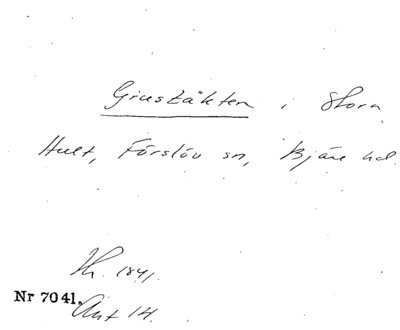 Grustäkten i Stora
Hult, Förslöv sn, Bjäre hd.
Th. 1841.
Nr 7041.
Ant 14.